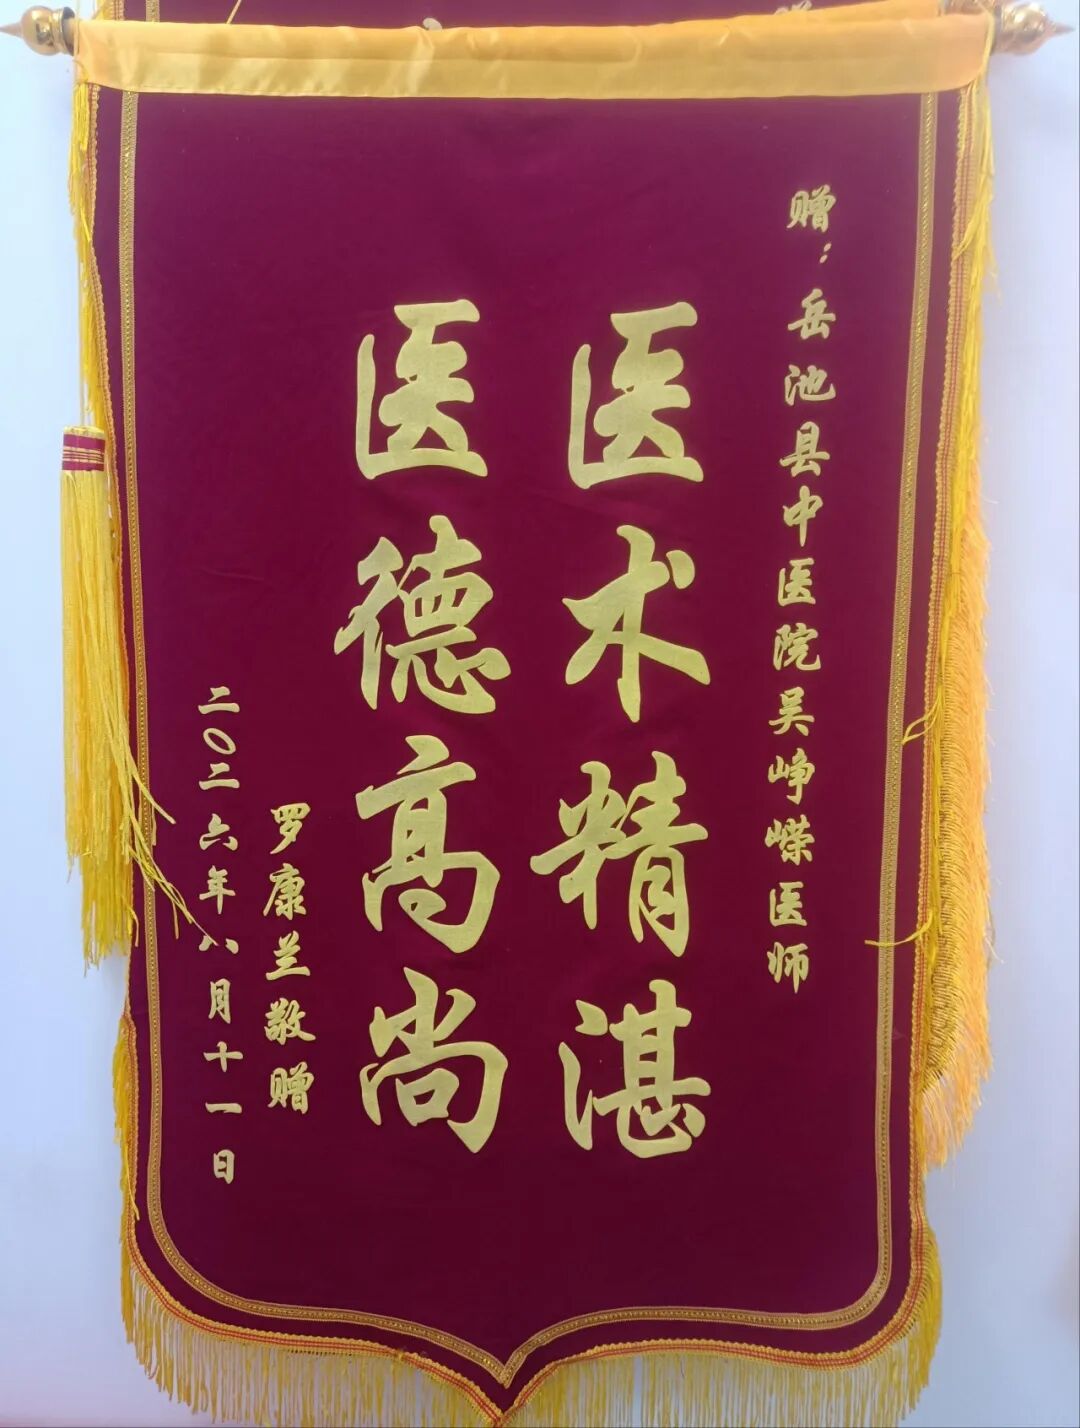 赠：岳池县中医院吴峥嵘医师
医术精湛
医德高尚
罗康兰敬赠
二〇二六年八月十一日